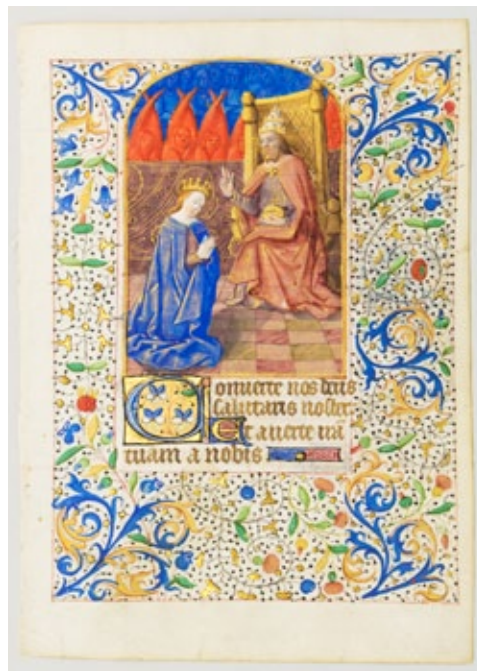 Conuerte nos deus
salutaris noster.
Et auerte ira
tuam a nobis